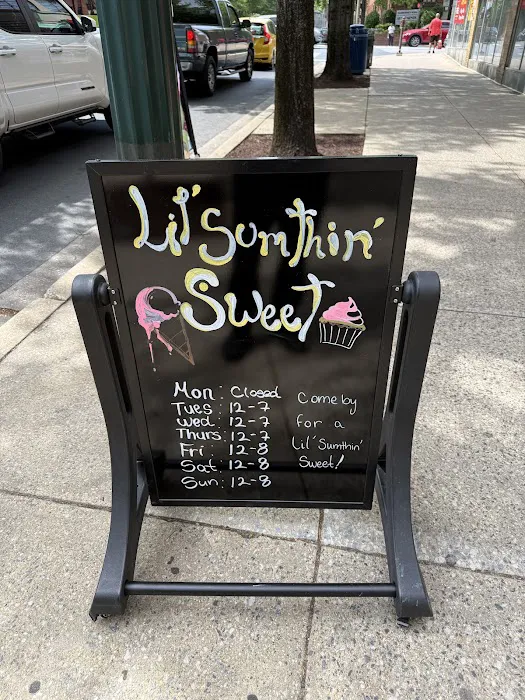 Lil' Sumthin'
Sweet
Mon: Closed
Tues: 12-7
Wed: 12-7
Thurs: 12-7
Fri: 12-8
Sat: 12-8
Sun: 12-8
Come by
for a
Lil' Sumthin'
Sweet!